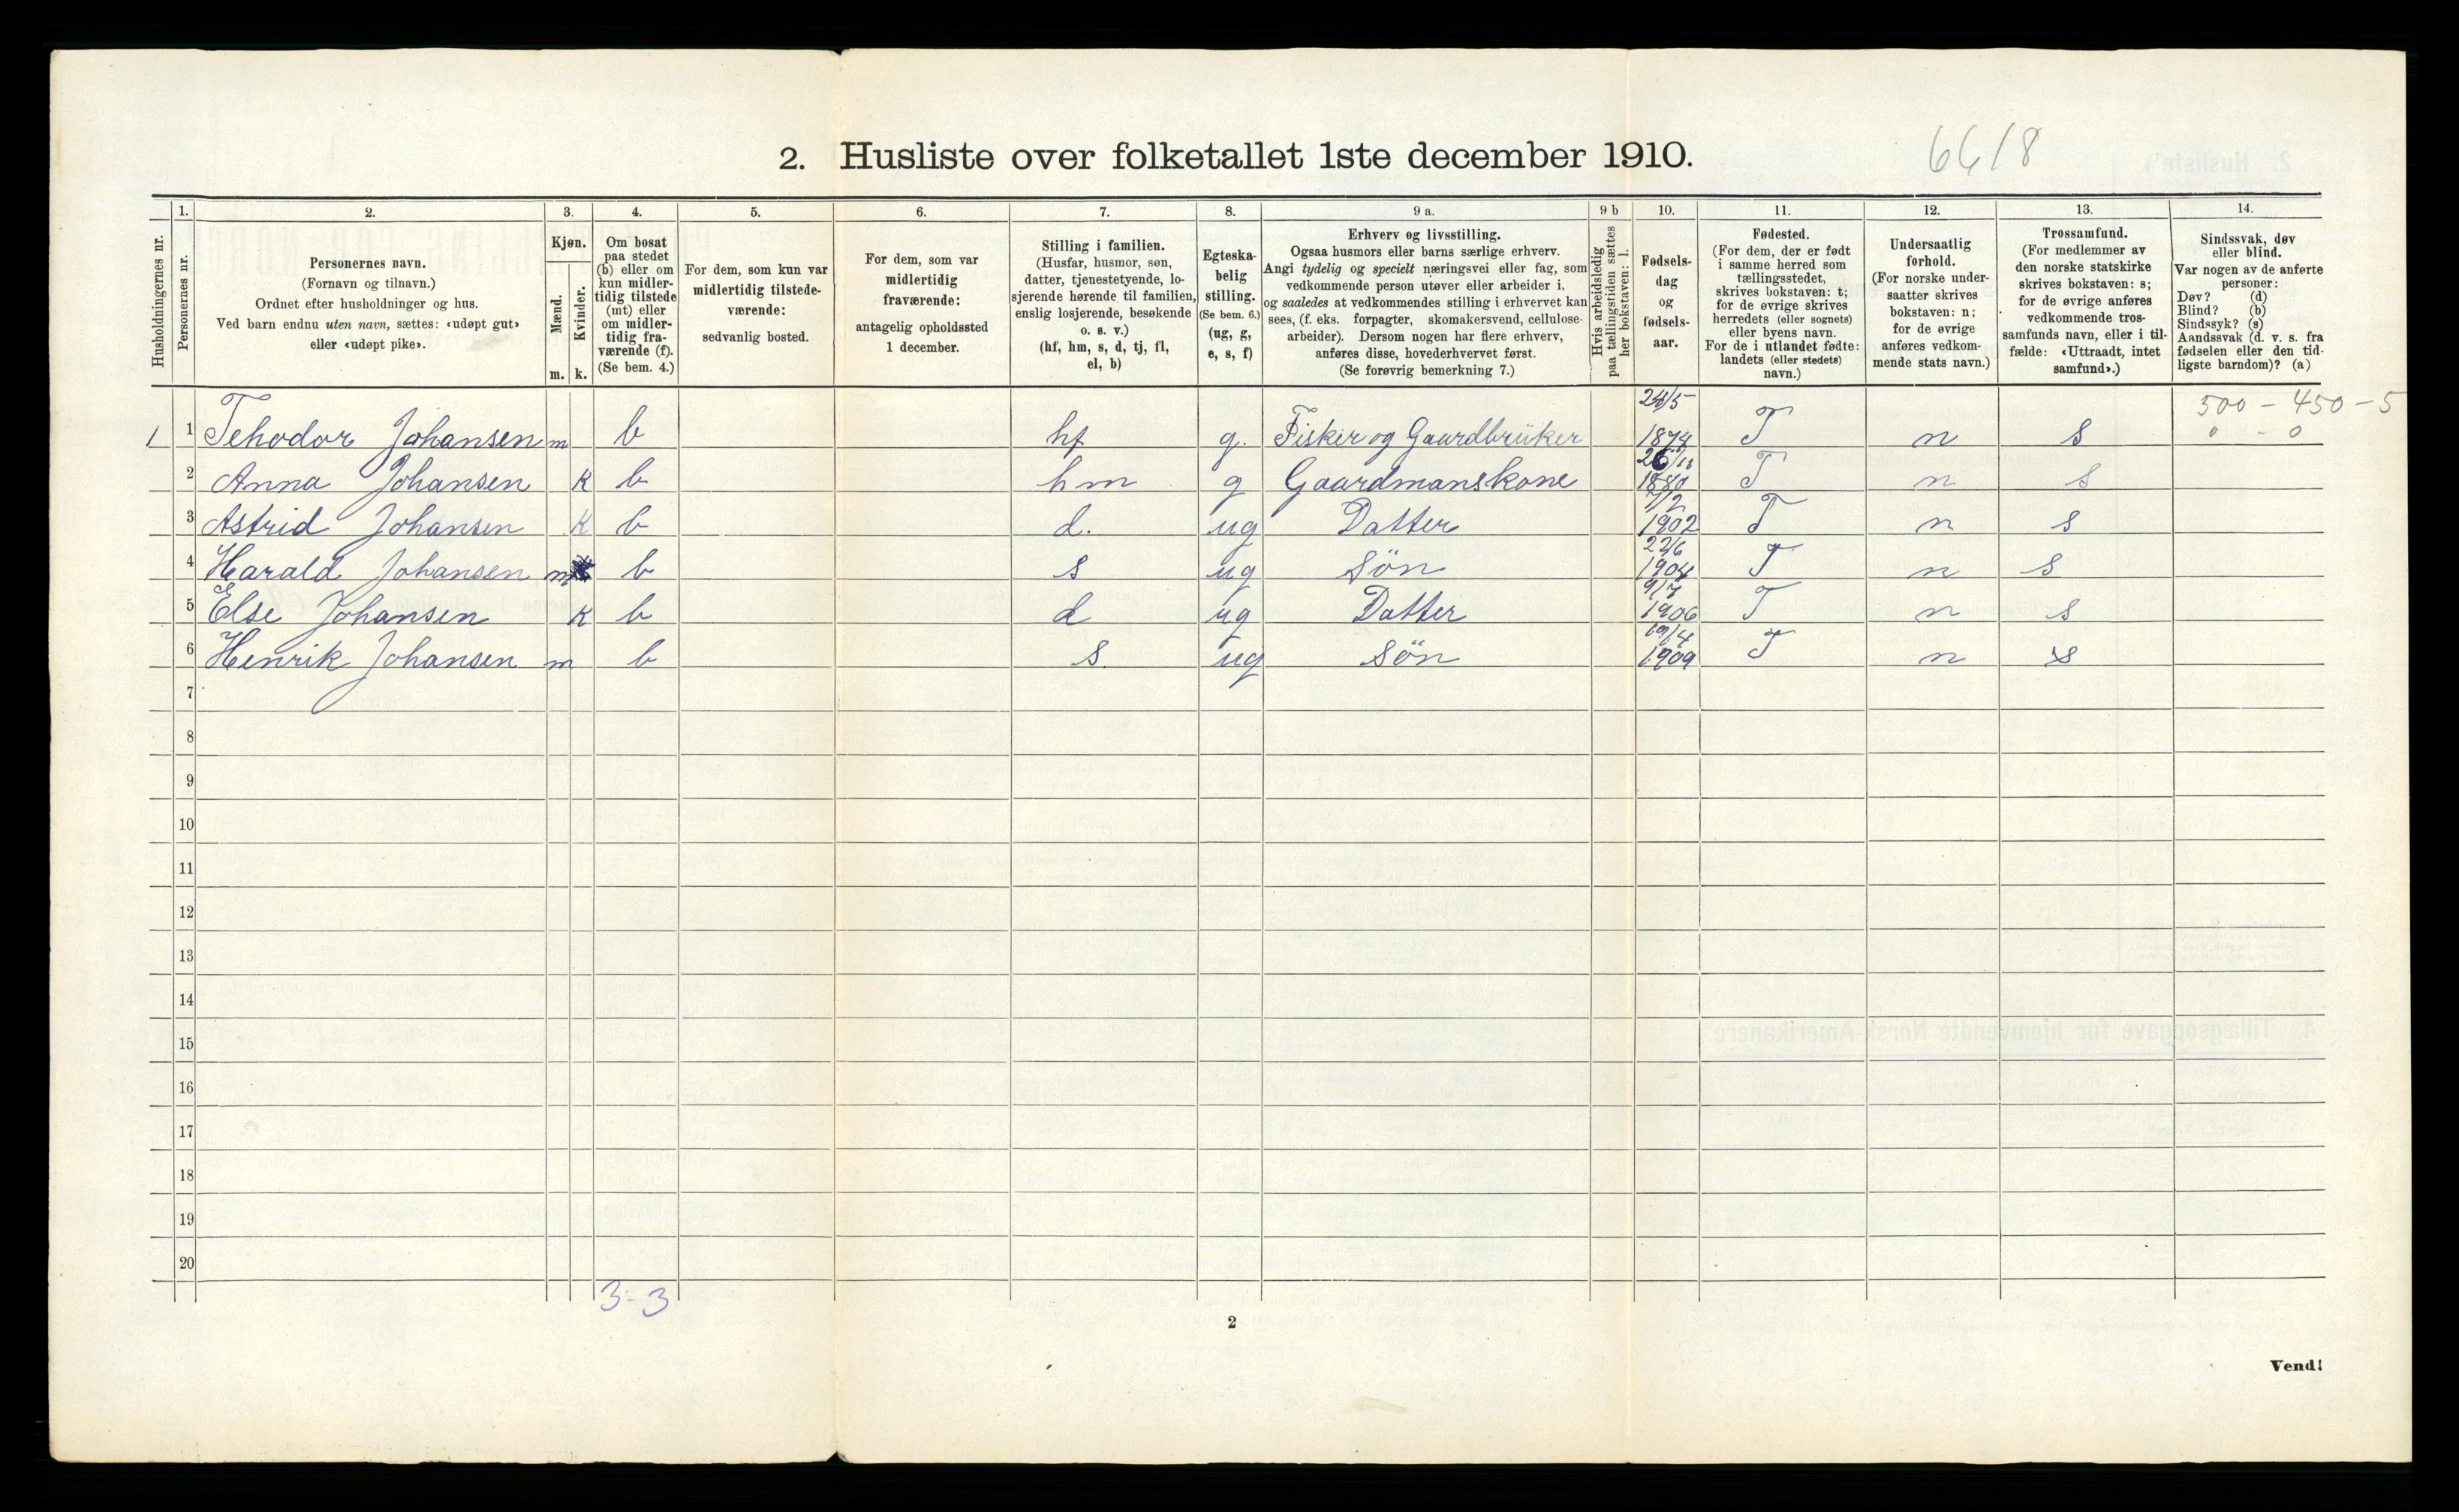 2. Husliste over folketallet 1ste december 1910.
6618
Husholdningernes nr.
1.
Personernes nr.
2.
Personernes navn.
(Fornavn og tilnavn.)
Ordnet efter husholdninger og hus.
Ved barn endnu uten navn, sættes: «udøpt gut»
eller «udøpt pike».
3.
Kjøn.
Mænd.
Kvinder.
m. k.
4.
Om bosat
paa stedet
(b) eller om
kun midler-
tidig tilstede
(mt) eller
om midler-
tidig fra-
værende (f).
(Se bem. 4.)
5.
For dem, som kun var
midlertidig tilstede-
værende:
sedvanlig bosted.
6.
For dem, som var
midlertidig
fraværende:
antagelig opholdssted
1 december.
7.
Stilling i familien.
(Husfar, husmor, søn,
datter, tjenestetyende, lo-
sjerende hørende til familien,
enslig losjerende, besøkende
o. s. v.)
(hf, hm, s, d, tj, fl,
el, b)
8.
Egteska-
belig
stilling.
(Se bem. 6.)
(ug, g,
e, s, f)
9 a.
Erhverv og livsstilling.
Ogsaa husmors eller barns særlige erhverv.
Angi tydelig og specielt næringsvei eller fag, som
vedkommende person utøver eller arbeider i,
og saaledes at vedkommendes stilling i erhvervet kan
sees, (f. eks. forpagter, skomakersvend, cellulose-
arbeider). Dersom nogen har flere erhverv,
anføres disse, hovederhvervet først.
(Se forøvrig bemerkning 7.)
9 b
Hvis arbeidsledig
paa tællingstiden sættes
her bokstaven: l.
10.
Fødsels-
dag
og
fødsels-
aar.
11.
Fødested.
(For dem, der er født
i samme herred som
tællingsstedet,
skrives bokstaven: t;
for de øvrige skrives
herredets (eller sognets)
eller byens navn.
For de i utlandet fødte:
landets (eller stedets)
navn.)
12.
Undersaatlig
forhold.
(For norske under-
saatter skrives
bokstaven: n;
for de øvrige
anføres vedkom-
mende stats navn.)
13.
Trossamfund.
(For medlemmer av
den norske statskirke
skrives bokstaven: s;
for de øvrige anføres
vedkommende tros-
samfunds navn, eller i til-
fælde: «Uttraadt, intet
samfund».)
14.
Sindssvak, døv
eller blind.
Var nogen av de anførte
personer:
Døv? (d)
Blind? (b)
Sindssyk? (s)
Aandssvak (d. v. s. fra
fødselen eller den tid-
ligste barndom)? (a)
500 - 450 - 5
0 - 0
1 1 Tehodor Johansen m b hf g. Fisker og Gaardbrüker 24/5 1874 T n s
2 Anna Johansen K b hm g Gaardmanskone 1880 T n s
3 Astrid Johansen K b d. ug Datter 7/2 1902 T n s
4 Harald Johansen m b s ug Sön 22/6 1904 T n s
5 Else Johansen K b d ug Datter 9/7 1906 T n s
6 Henrik Johansen m b s ug Sön 19/4 1909 T n s
7
8
9
10
11
12
13
14
15
16
17
18
19
20
3-3
2
Vend!